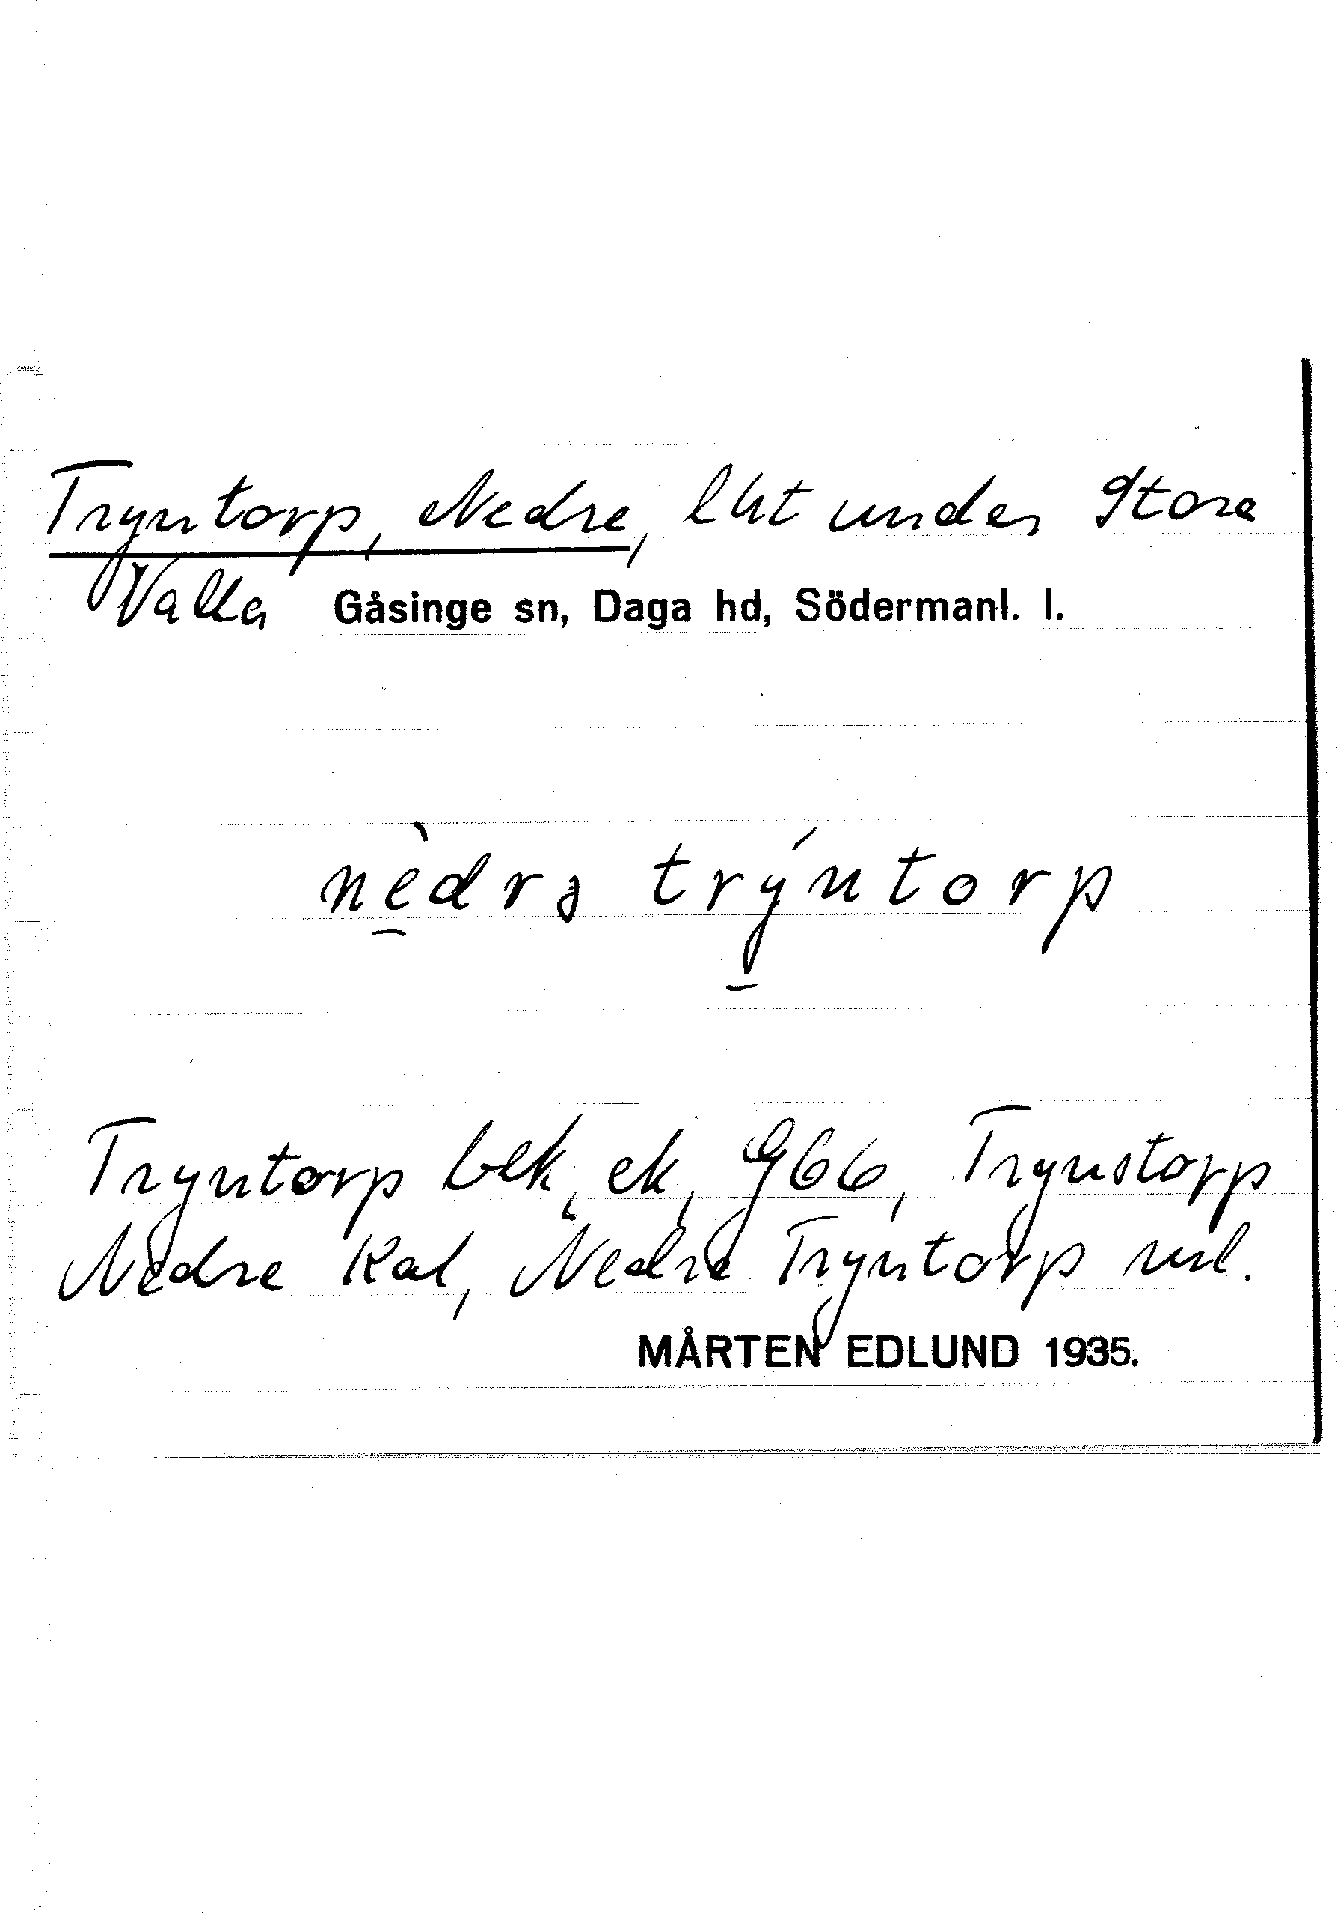 Tryntorp, Nedre, lht under Stora
Valla Gåsinge sn, Daga hd, Södermanl. l.
nèdrə trýntorp
Tryntorp bek, ek, G66, Trynstorp
Nedre Kal, Nedre Tryntorp url.
MÅRTEN EDLUND 1935.